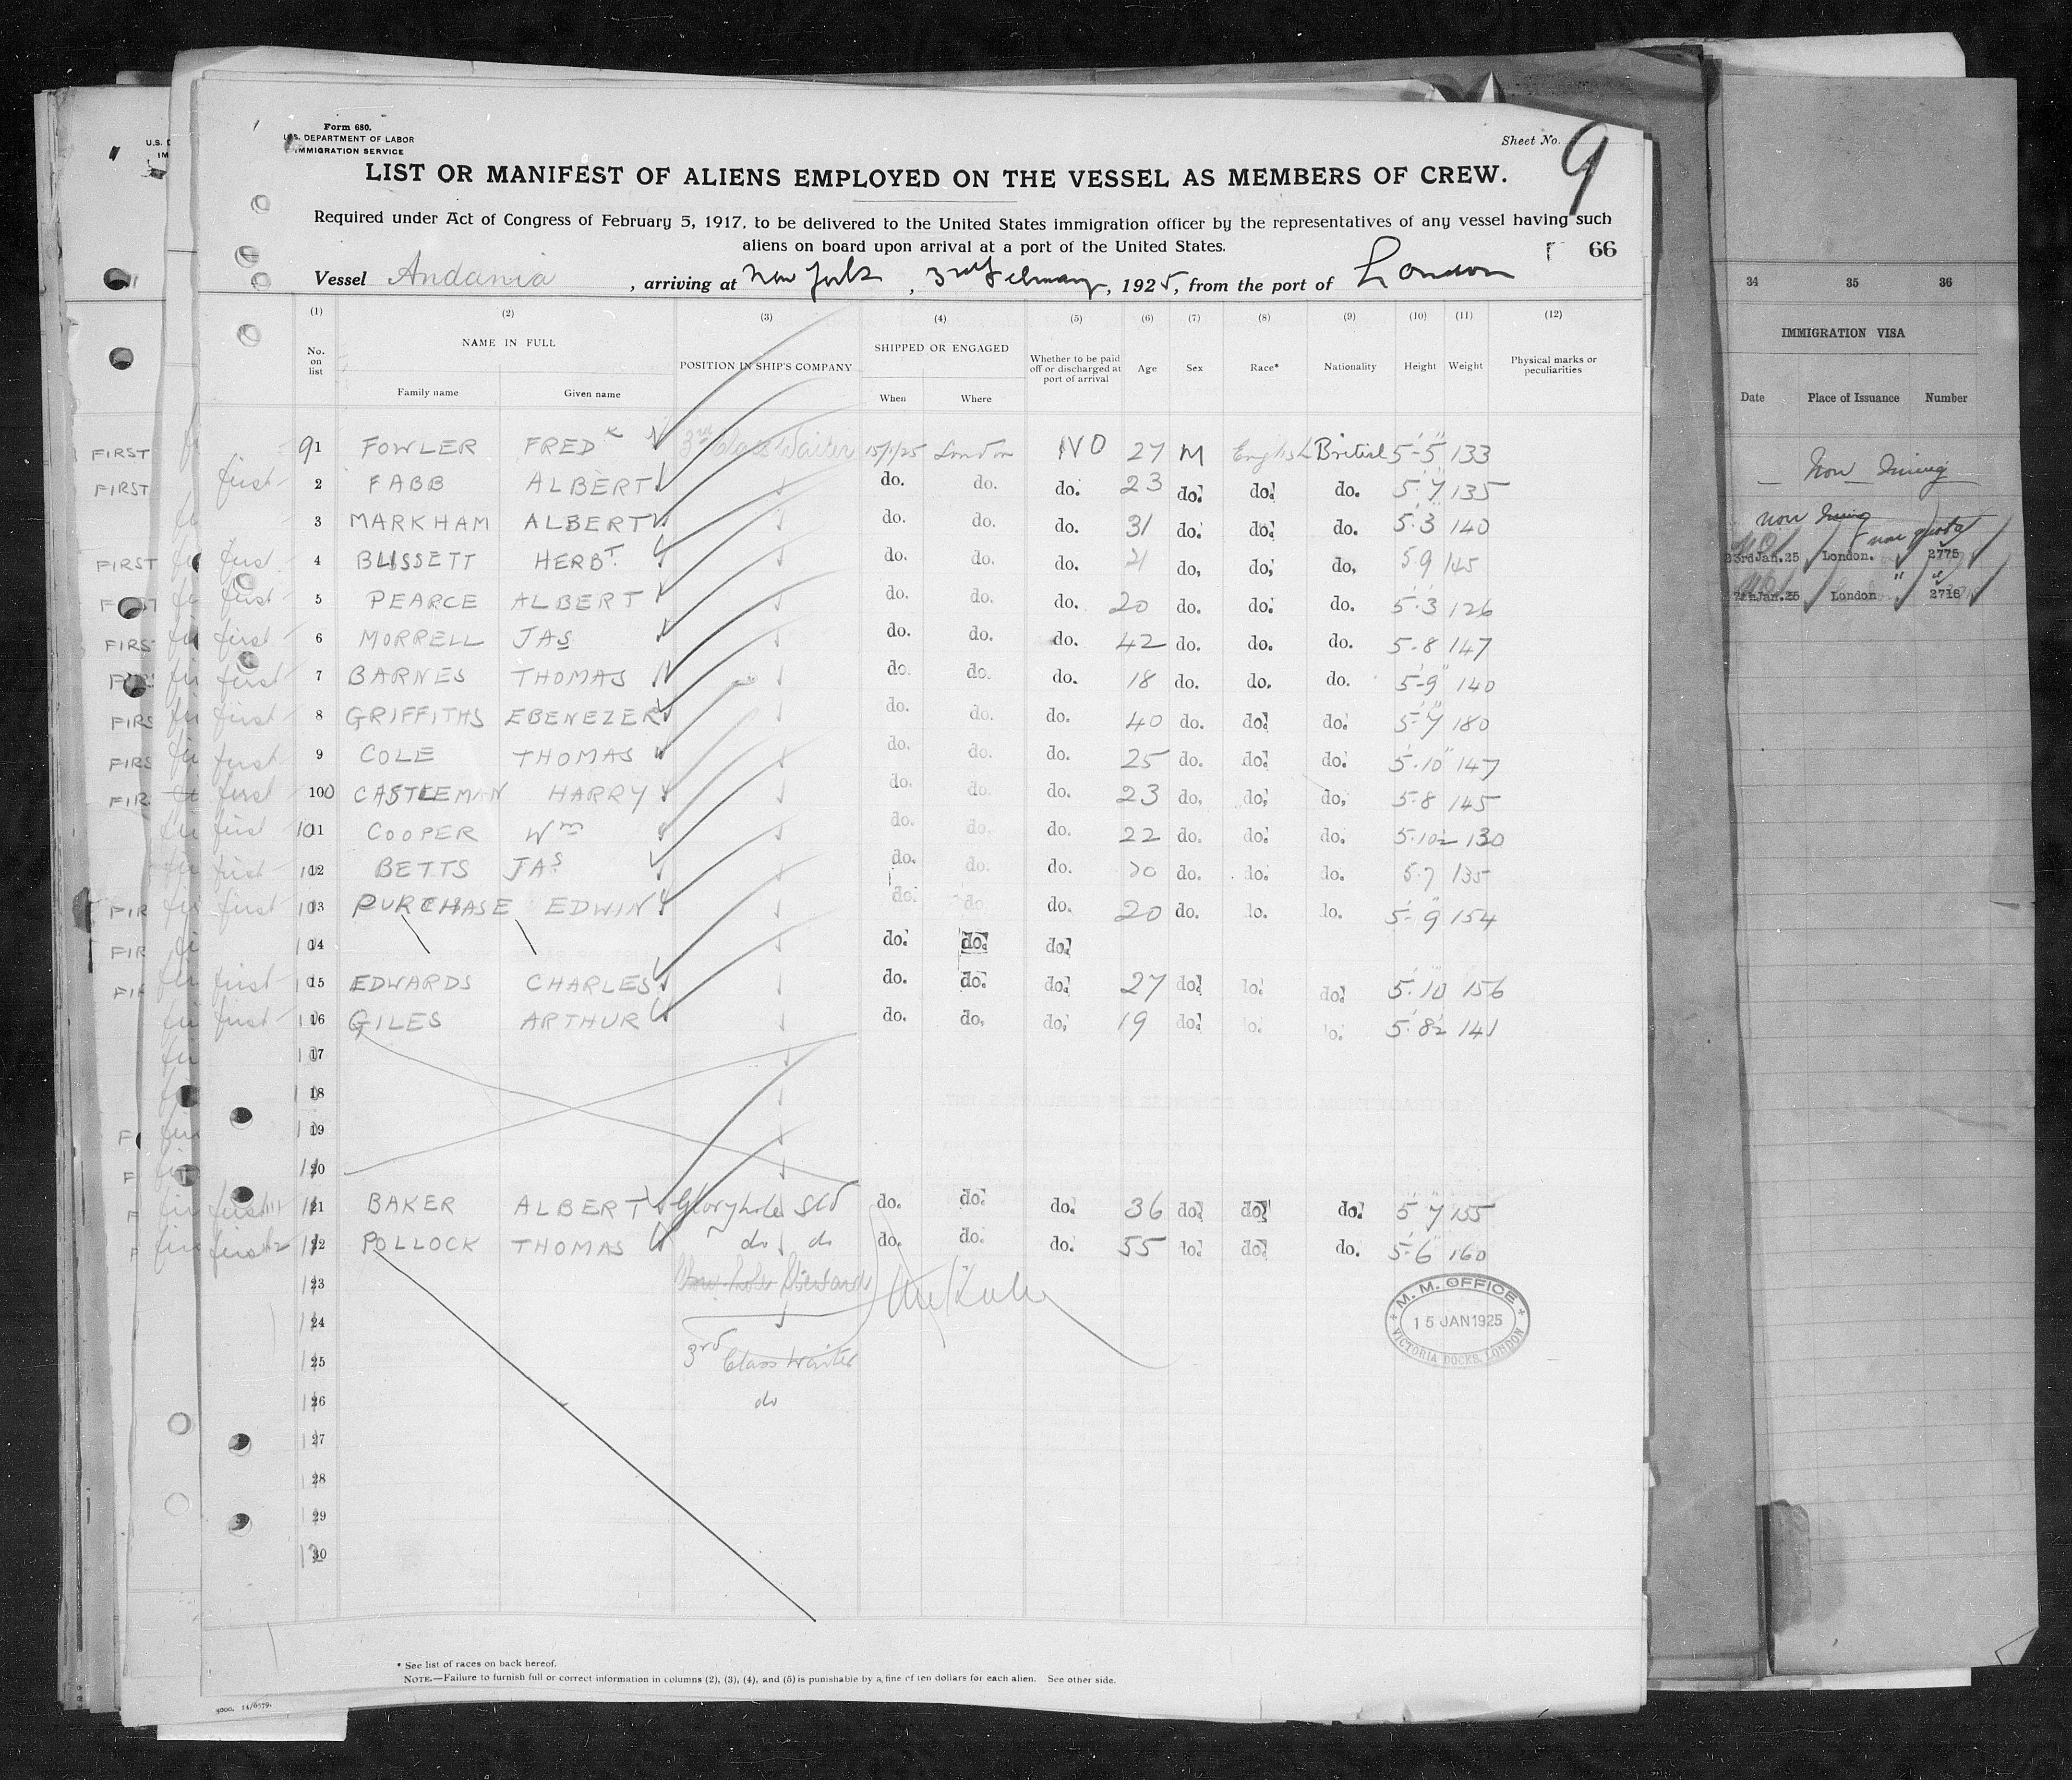 Form 680.
U.S. DEPARTMENT OF LABOR
IMMIGRATION SERVICE
Sheet No. 9
LIST OR MANIFEST OF ALIENS EMPLOYED ON THE VESSEL AS MEMBERS OF CREW.
Required under Act of Congress of February 5, 1917, to be delivered to the United States immigration officer by the representatives of any vessel having such
aliens on board upon arrival at a port of the United States.
66
Vessel Andania, arriving at New York, 3rd February, 1925, from the port of London
(1) (2) (3) (4) (5) (6) (7) (8) (9) (10) (11) (12)
No. on list NAME IN FULL Family name Given name POSITION IN SHIP'S COMPANY SHIPPED OR ENGAGED When Where Whether to be paid off or discharged at port of arrival Age Sex Race* Nationality Height Weight Physical marks or peculiarities
91 FOWLER FRED K 3rd Class Waiter 15/1/25 London NO 27 M English British 5-5 133
first 2 FABB ALBERT do. do. do. 23 do. do. do. 5.7 135
3 MARKHAM ALBERT do. do. do. 31 do. do. do. 5.3 140
first 4 BLISSETT HERBT do. do. do. 21 do. do. do. 5.9 145
first 5 PEARCE ALBERT do. do. do. 20 do. do. do. 5.3 126
first 6 MORRELL JAS do. do. do. 42 do. do. do. 5.8 147
first 7 BARNES THOMAS do. do. do. 18 do. do. do. 5-9 140
first 8 GRIFFITHS EBENEZER do. do. do. 40 do. do. do. 5.7 180
first 9 COLE THOMAS do. do. do. 25 do. do. do. 5.10 147
first 100 CASTLEMAN HARRY do. do. do. 23 do. do. do. 5.8 145
first 101 COOPER Wm do. do. do. 22 do. do. do. 5.10½ 130
first 102 BETTS JAS do. do. do. do. do. do. 5.7 135
first 103 PURCHASE EDWIN do. do. do. 20 do. do. do. 5.9 154
14 do. do. do.
first 15 EDWARDS CHARLES do. do. do. 27 do. do. do. 5.10 156
first 16 GILES ARTHUR do. do. do. 19 do. do. do. 5.8½ 141
17
18
19
20
first 21 BAKER ALBERT Gloryhole Std do. do. do. 36 do. do. do. 5 7 155
first 22 POLLOCK THOMAS do do do. do. do. 55 do. do. do. 5.6 160
23
24
25 3rd Class Waiter
26 do
27
28
29
30
M. M. OFFICE
15 JAN 1925
VICTORIA DOCKS, LONDON
* See list of races on back hereof.
NOTE.—Failure to furnish full or correct information in columns (2), (3), (4), and (5) is punishable by a fine of ten dollars for each alien. See other side.
34 35 36
IMMIGRATION VISA
Date Place of Issuance Number
non quota
23rd Jan. 25 London. 2775
Jan. 25 London 2718